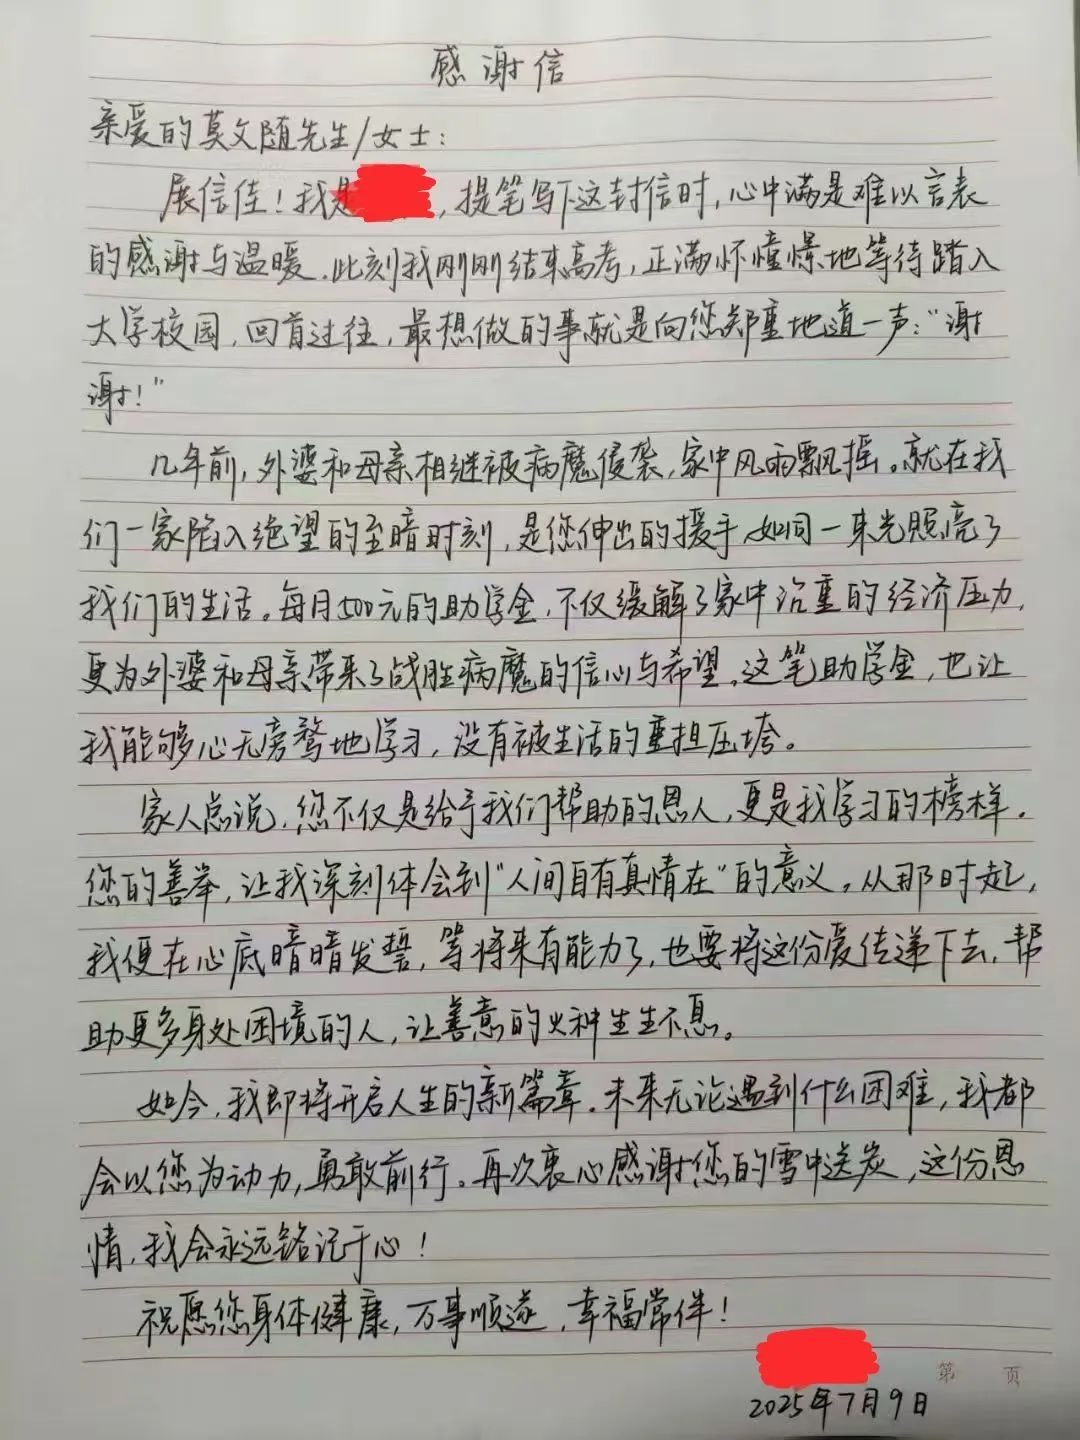 感谢信
亲爱的莫文随先生/女士：
展信佳！我是，提笔写下这封信时，心中满是难以言表
的感谢与温暖．此刻我刚刚结束高考，正满怀憧憬地等待踏入
大学校园，回首过往，最想做的事就是向您郑重地道一声：“谢
谢！”
几年前，外婆和母亲相继被病魔侵袭，家中风雨飘摇。就在我
们一家陷入绝望的至暗时刻，是您伸出的援手，如同一束光照亮了
我们的生活。每月500元的助学金，不仅缓解了家中沉重的经济压力，
更为外婆和母亲带来了战胜病魔的信心与希望。这笔助学金，也让
我能够心无旁骛地学习，没有被生活的重担压垮。
家人总说，您不仅是给予我们帮助的恩人，更是我学习的榜样。
您的善举，让我深刻体会到“人间自有真情在”的意义。从那时起，
我便在心底暗暗发誓，等将来有能力了，也要将这份爱传递下去，帮
助更多身处困境的人，让善意的火种生生不息。
如今，我即将开启人生的新篇章。未来无论遇到什么困难，我都
会以您为动力，勇敢前行。再次衷心感谢您的雪中送炭，这份恩
情，我会永远铭记于心！
祝愿您身体健康，万事顺遂，幸福常伴！
第 页
2025年7月9日